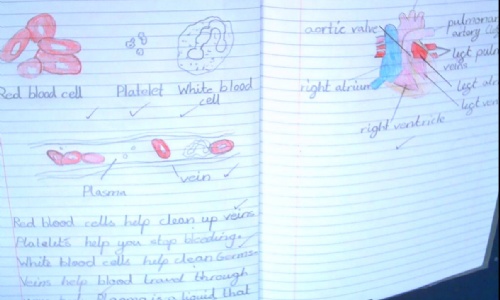 Red blood cell
Platelet
White blood
cell
Plasma
vein
Red blood cells help clean up veins
Platelets help you stop bleeding.
White blood cells help clean Germs.
Veins help blood travel through
Plasma is a liquid that
aortic valve
right atrium
right ventricle
pulmonary
artery
left
veins
left
left